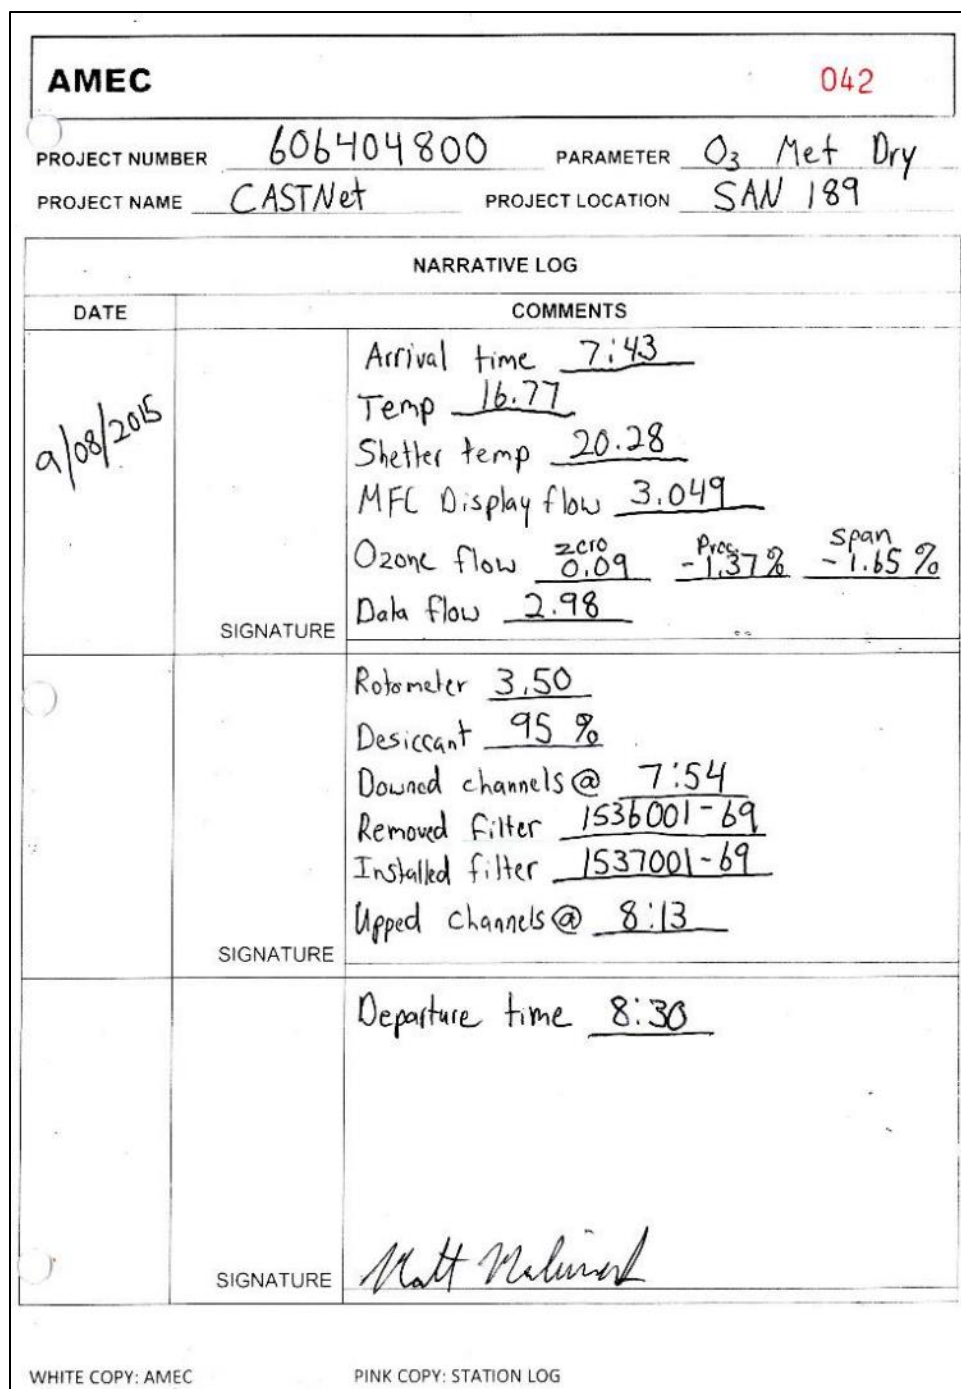 AMEC 042
PROJECT NUMBER 606404800 PARAMETER O₃ Met Dry
PROJECT NAME CASTNet PROJECT LOCATION SAN 189
NARRATIVE LOG
DATE COMMENTS
9/08/2015
Arrival time 7:43
Temp 16.77
Shelter temp 20.28
MFC Display flow 3.049
Ozone flow zero 0.09 Prec. -1.37% span -1.65%
Data flow 2.98
SIGNATURE
Rotometer 3.50
Desiccant 95%
Downed channels @ 7:54
Removed filter 1536001-69
Installed filter 1537001-69
Upped channels @ 8:13
SIGNATURE
Departure time 8:30
SIGNATURE Matt
WHITE COPY: AMEC PINK COPY: STATION LOG